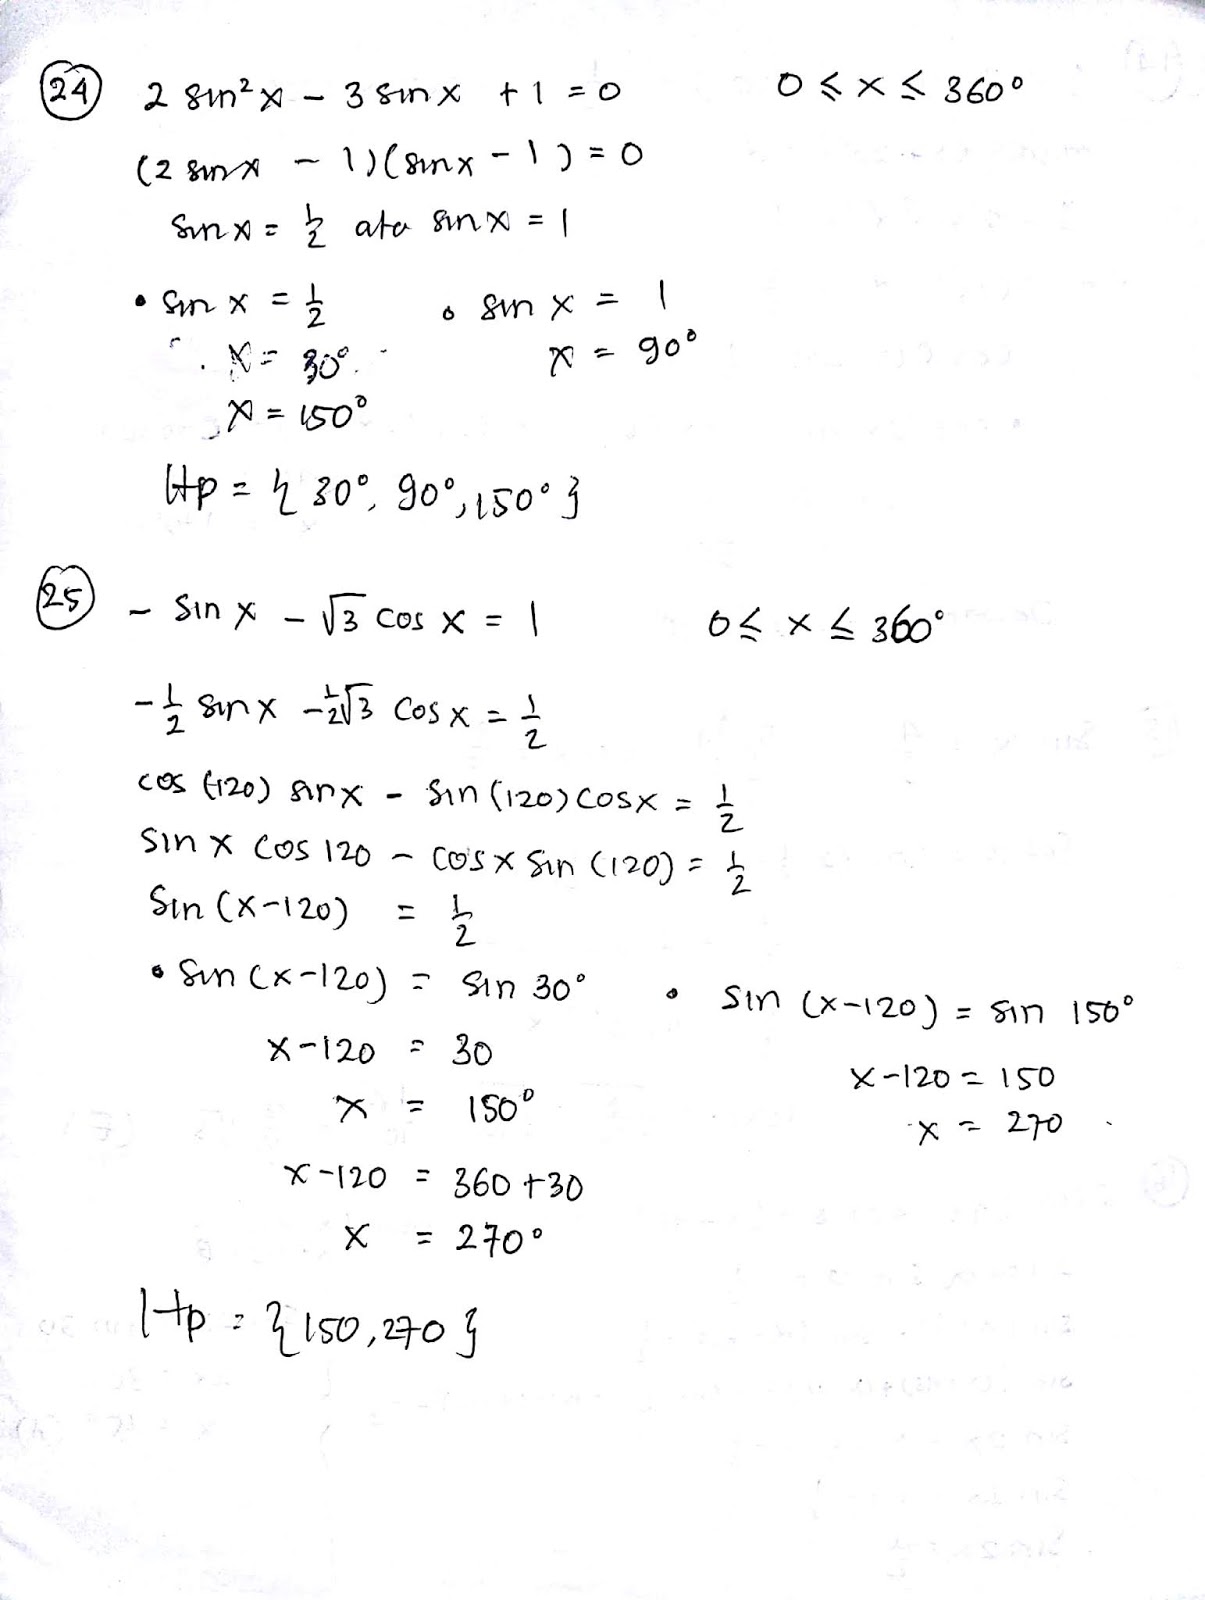 24 2 sin² x - 3 sin x + 1 = 0 0 ≤ x ≤ 360°
(2 sin x - 1)(sin x - 1) = 0
sin x = 1/2 ata sin x = 1
• sin x = 1/2 • sin x = 1
x = 30° x = 90°
x = 150°
Hp = { 30°, 90°, 150° }
25 - sin x - √3 cos x = 1 0 ≤ x ≤ 360°
-1/2 sin x - 1/2√3 cos x = 1/2
cos (120) sin x - sin (120) cos x = 1/2
sin x cos 120 - cos x sin (120) = 1/2
sin (x-120) = 1/2
• sin (x-120) = sin 30° • sin (x-120) = sin 150°
x-120 = 30 x-120 = 150
x = 150° x = 270
x-120 = 360 + 30
x = 270°
Hp = { 150, 270 }